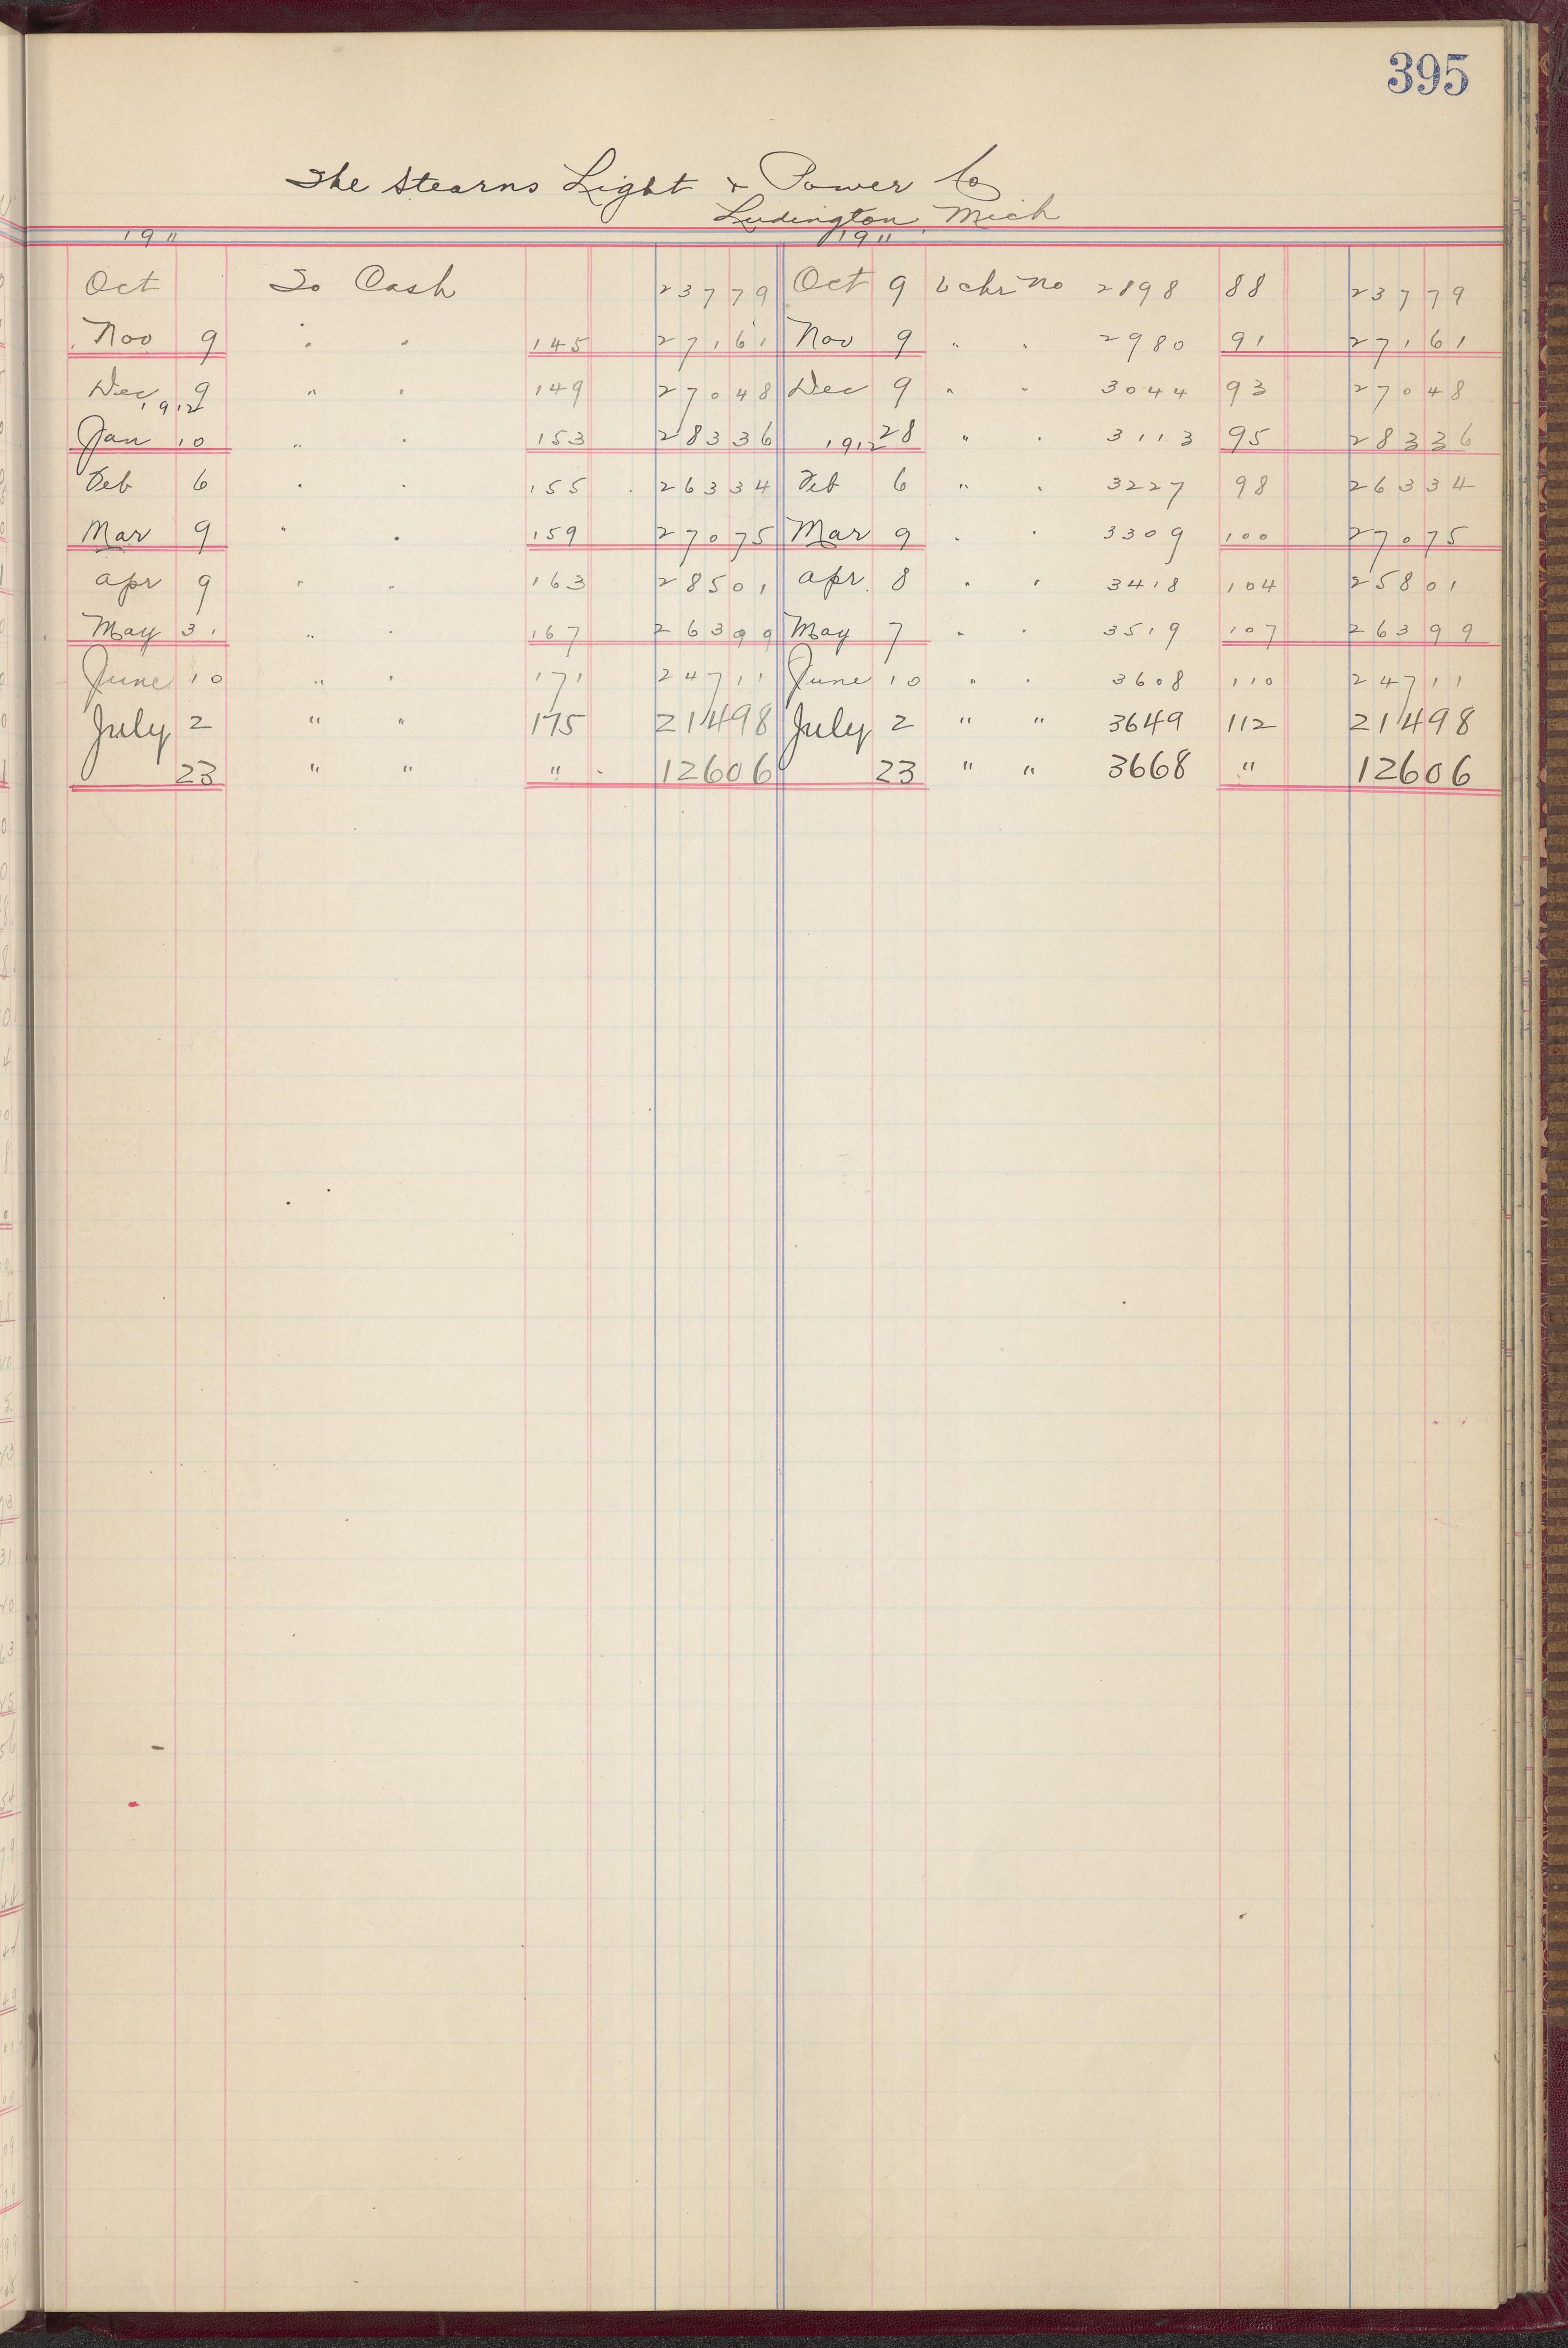 395
The Stearns Light & Power Co
Ludington, Mich
1911 1911
Oct To Cash 237 79 Oct 9 Vchr No 2898 88 237 79
Nov 9 " " 145 271 61 Nov 9 " " 2980 91 271 61
Dec 9 " " 149 270 48 Dec 9 " " 3044 93 270 48
1912
Jan 10 " " 153 283 36 1912 28 " " 3113 95 283 36
Feb 6 " " 155 263 34 Feb 6 " " 3227 98 263 34
Mar 9 " " 159 270 75 Mar 9 " " 3309 100 270 75
Apr 9 " " 163 285 01 Apr. 8 " " 3418 104 258 01
May 31 " " 167 263 99 May 7 " " 3519 107 263 99
June 10 " " 171 247 11 June 10 " " 3608 110 247 11
July 2 " " 175 214 98 July 2 " " 3649 112 214 98
23 " " " 126 06 23 " " 3668 " 126 06